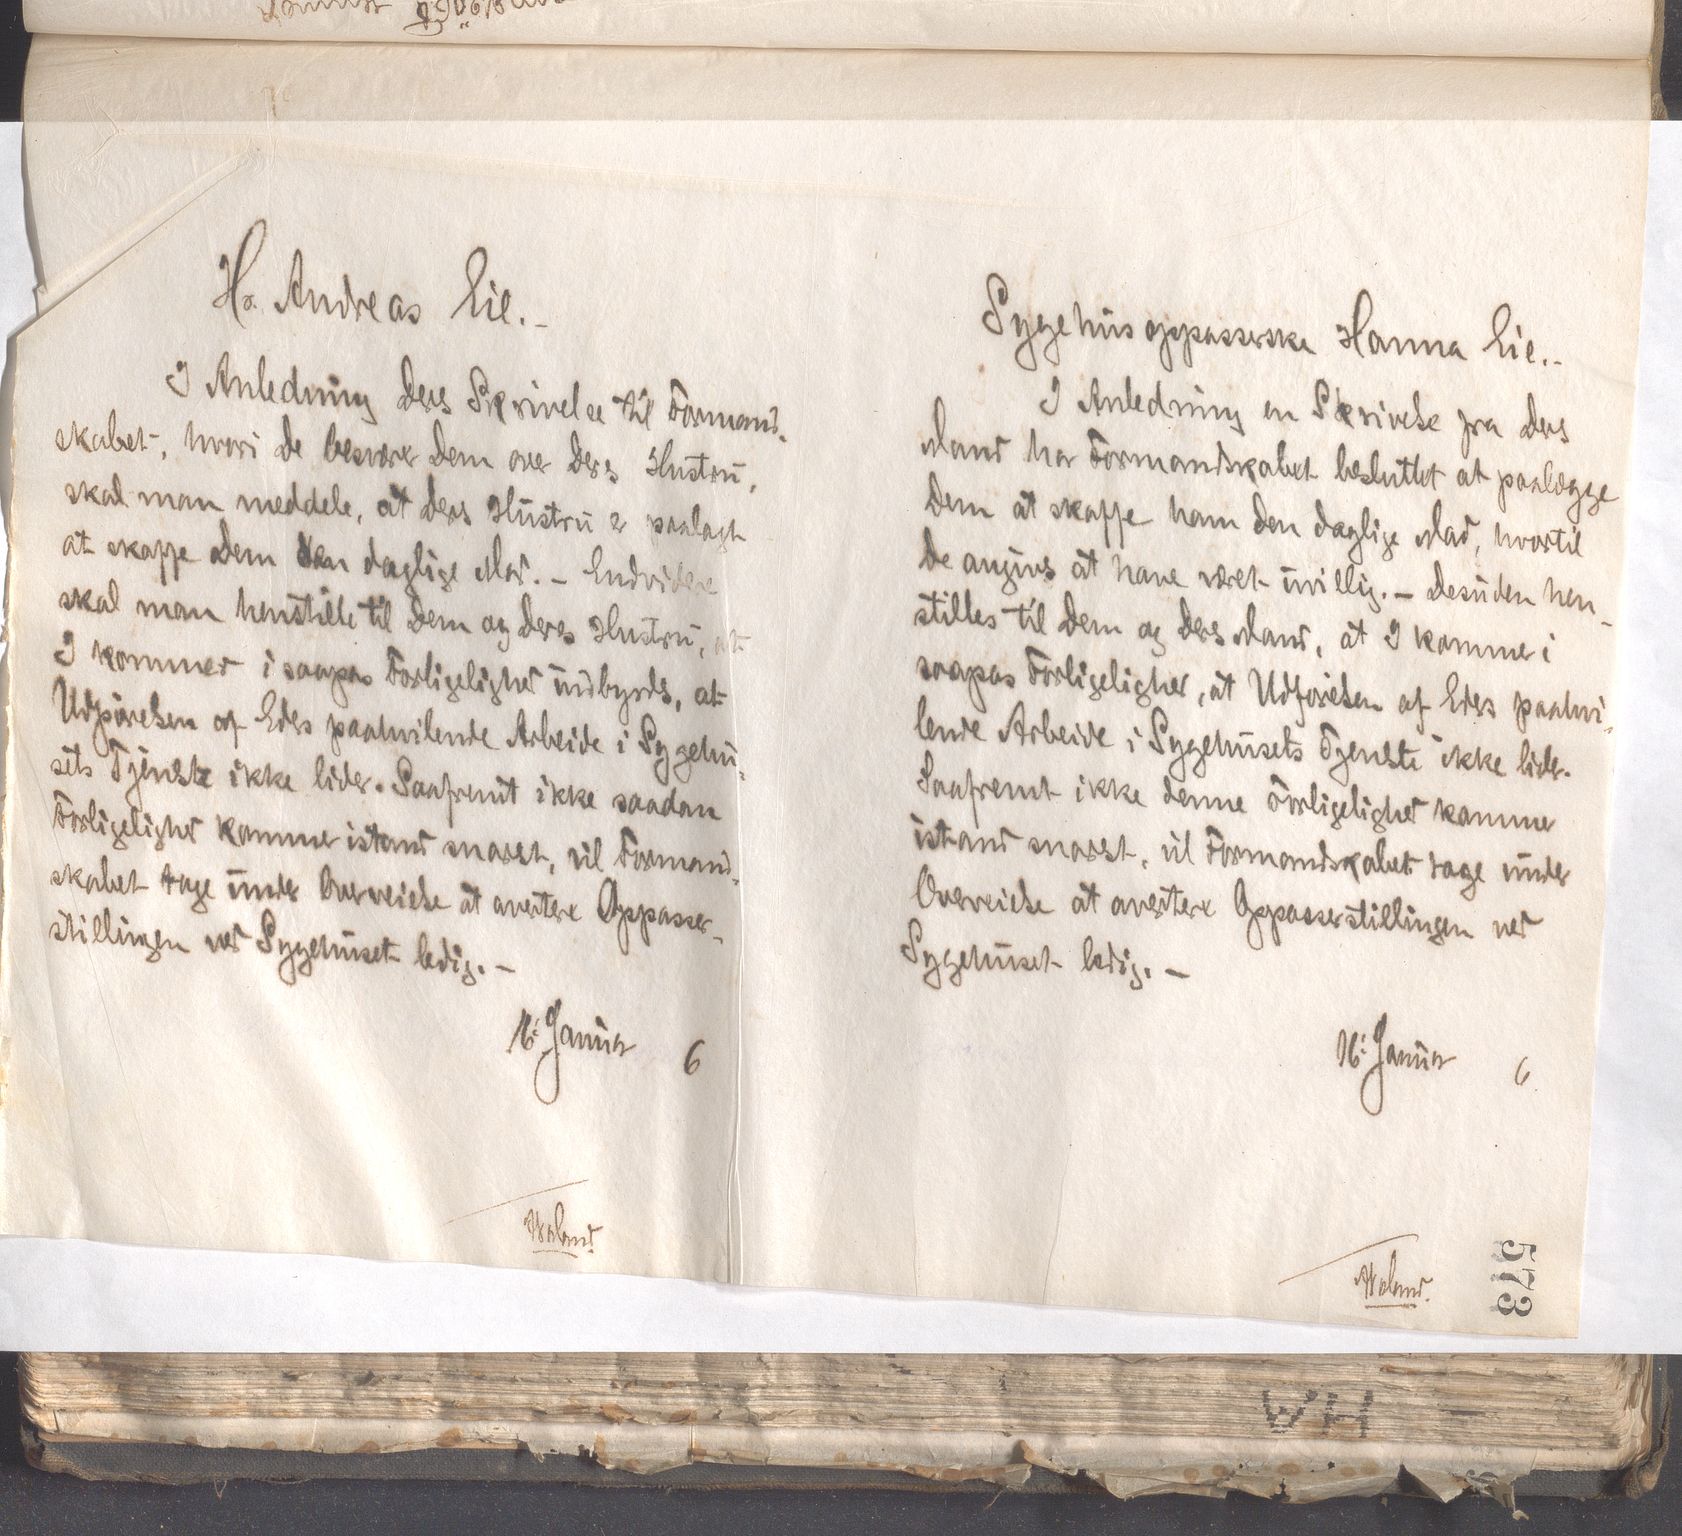 Hr. Andreas Eie.-
I Anledning Deres Skrivelse til Formand-
skabet, hvori De besværer Dem over Deres Hustru,
skal man meddele, at Deres Hustru er paalagt
at skaffe Dem den daglige Mad. - Endvidere
skal man henstille til Dem og Deres Hustru, at
I kommer i saapas Forligelighed indbyrds, at
Udførelsen af Eders paahvilende Arbeide i Sygehu-
sets Tjenste ikke lider. Saafremt ikke saadan
Forligelighed kommer istand snarest, vil Formand-
skabet tage under Overveielse at avertere Oppasser-
stillingen ved Sygehuset ledig. -
16. Januar 6
Waland.
Sygehusoppasserske Hanna Eie.-
I Anledning en Skrivelse fra Deres
Mand har Formandskabet besluttet at paalægge
Dem at skaffe ham den daglige Mad, hvortil
De angives at have været uvillig. - Desuden hen-
stilles til Dem og Deres Mand, at I kommer i
saapas Forligelighed, at Udførelsen af Eders paahvi-
lende Arbeide i Sygehusets Tjenste ikke lider.
Saafremt ikke denne Forligelighed kommer
istand snarest, vil Formandskabet tage under
Overveielse at avertere Oppasserstillingen ved
Sygehuset ledig. -
16. Januar 6
Waland.
573